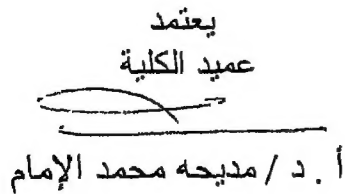 يعتمد
عميد الكلية
أ . د / مديحه محمد الإمام